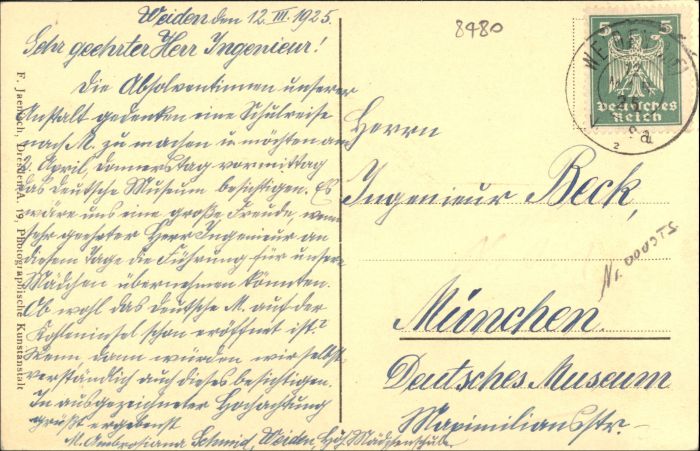 Weiden den 12. III. 1925.
Sehr geehrter Herr Ingenieur!
Die Absolventinnen unserer
Anstalt gedenken eine Schulreise
nach M. zu machen u. möchten am
2. April, Donnerstag vormittag
das Deutsche Museum besichtigen. Es
wäre uns eine große Freude, wenn
sehr geehrter Herr Ingenieur an
diesem Tage die Führung für unsere
Mädchen übernehmen könnten.
Ob wohl das Deutsche M. auf der
Kohleninsel schon eröffnet ist?
Wenn, dann würden wir selbst
verständlich auch dieses besichtigen.
In ausgezeichneter Hochachtung
grüßt ergebenst
M. Ambrosiana Schmid, Weiden, Höh. Mädchenschule.
F. Jaenisch, Dresden-A. 19, Photographische Kunstanstalt
8480
5 5
Deutsches
Reich
Herrn
Ingenieur Beck,
München.
Deutsches Museum
Maximilianstr.